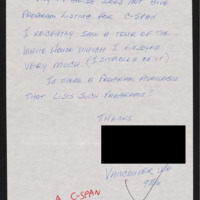 PROGRAM LISTING FOR C-SPAN
I RECENTLY SAW A TOUR OF THE
WHITE HOUSE WHICH I ENJOYED
VERY MUCH. (I STUMBLED ON IT)
IS THERE A PROGRAM AVAILABLE
THAT LISTS SUCH PROGRAMS?
THANKS
VANCOUVER WA
A C-SPAN